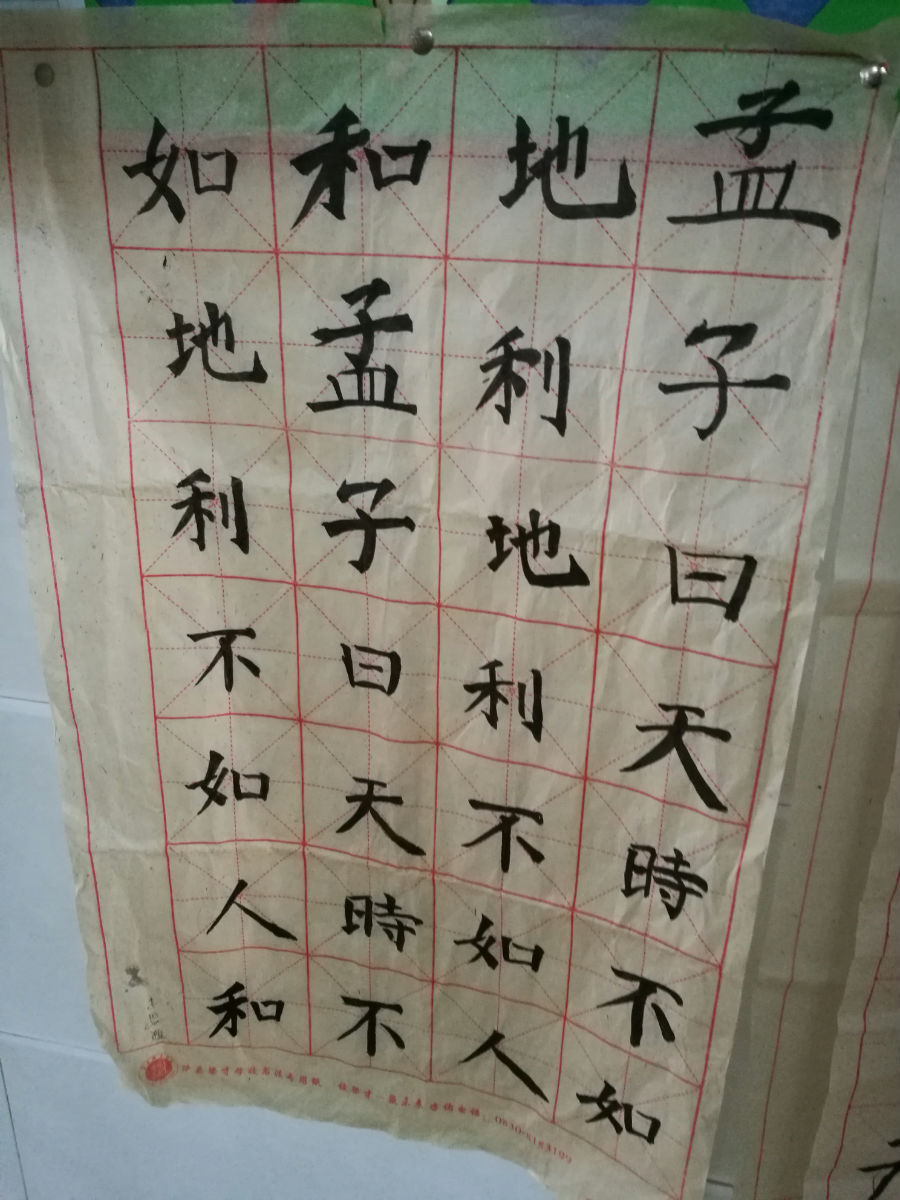 孟子曰天時不如
地利地利不如人
和孟子曰天時不
如地利不如人和
0830-8183199